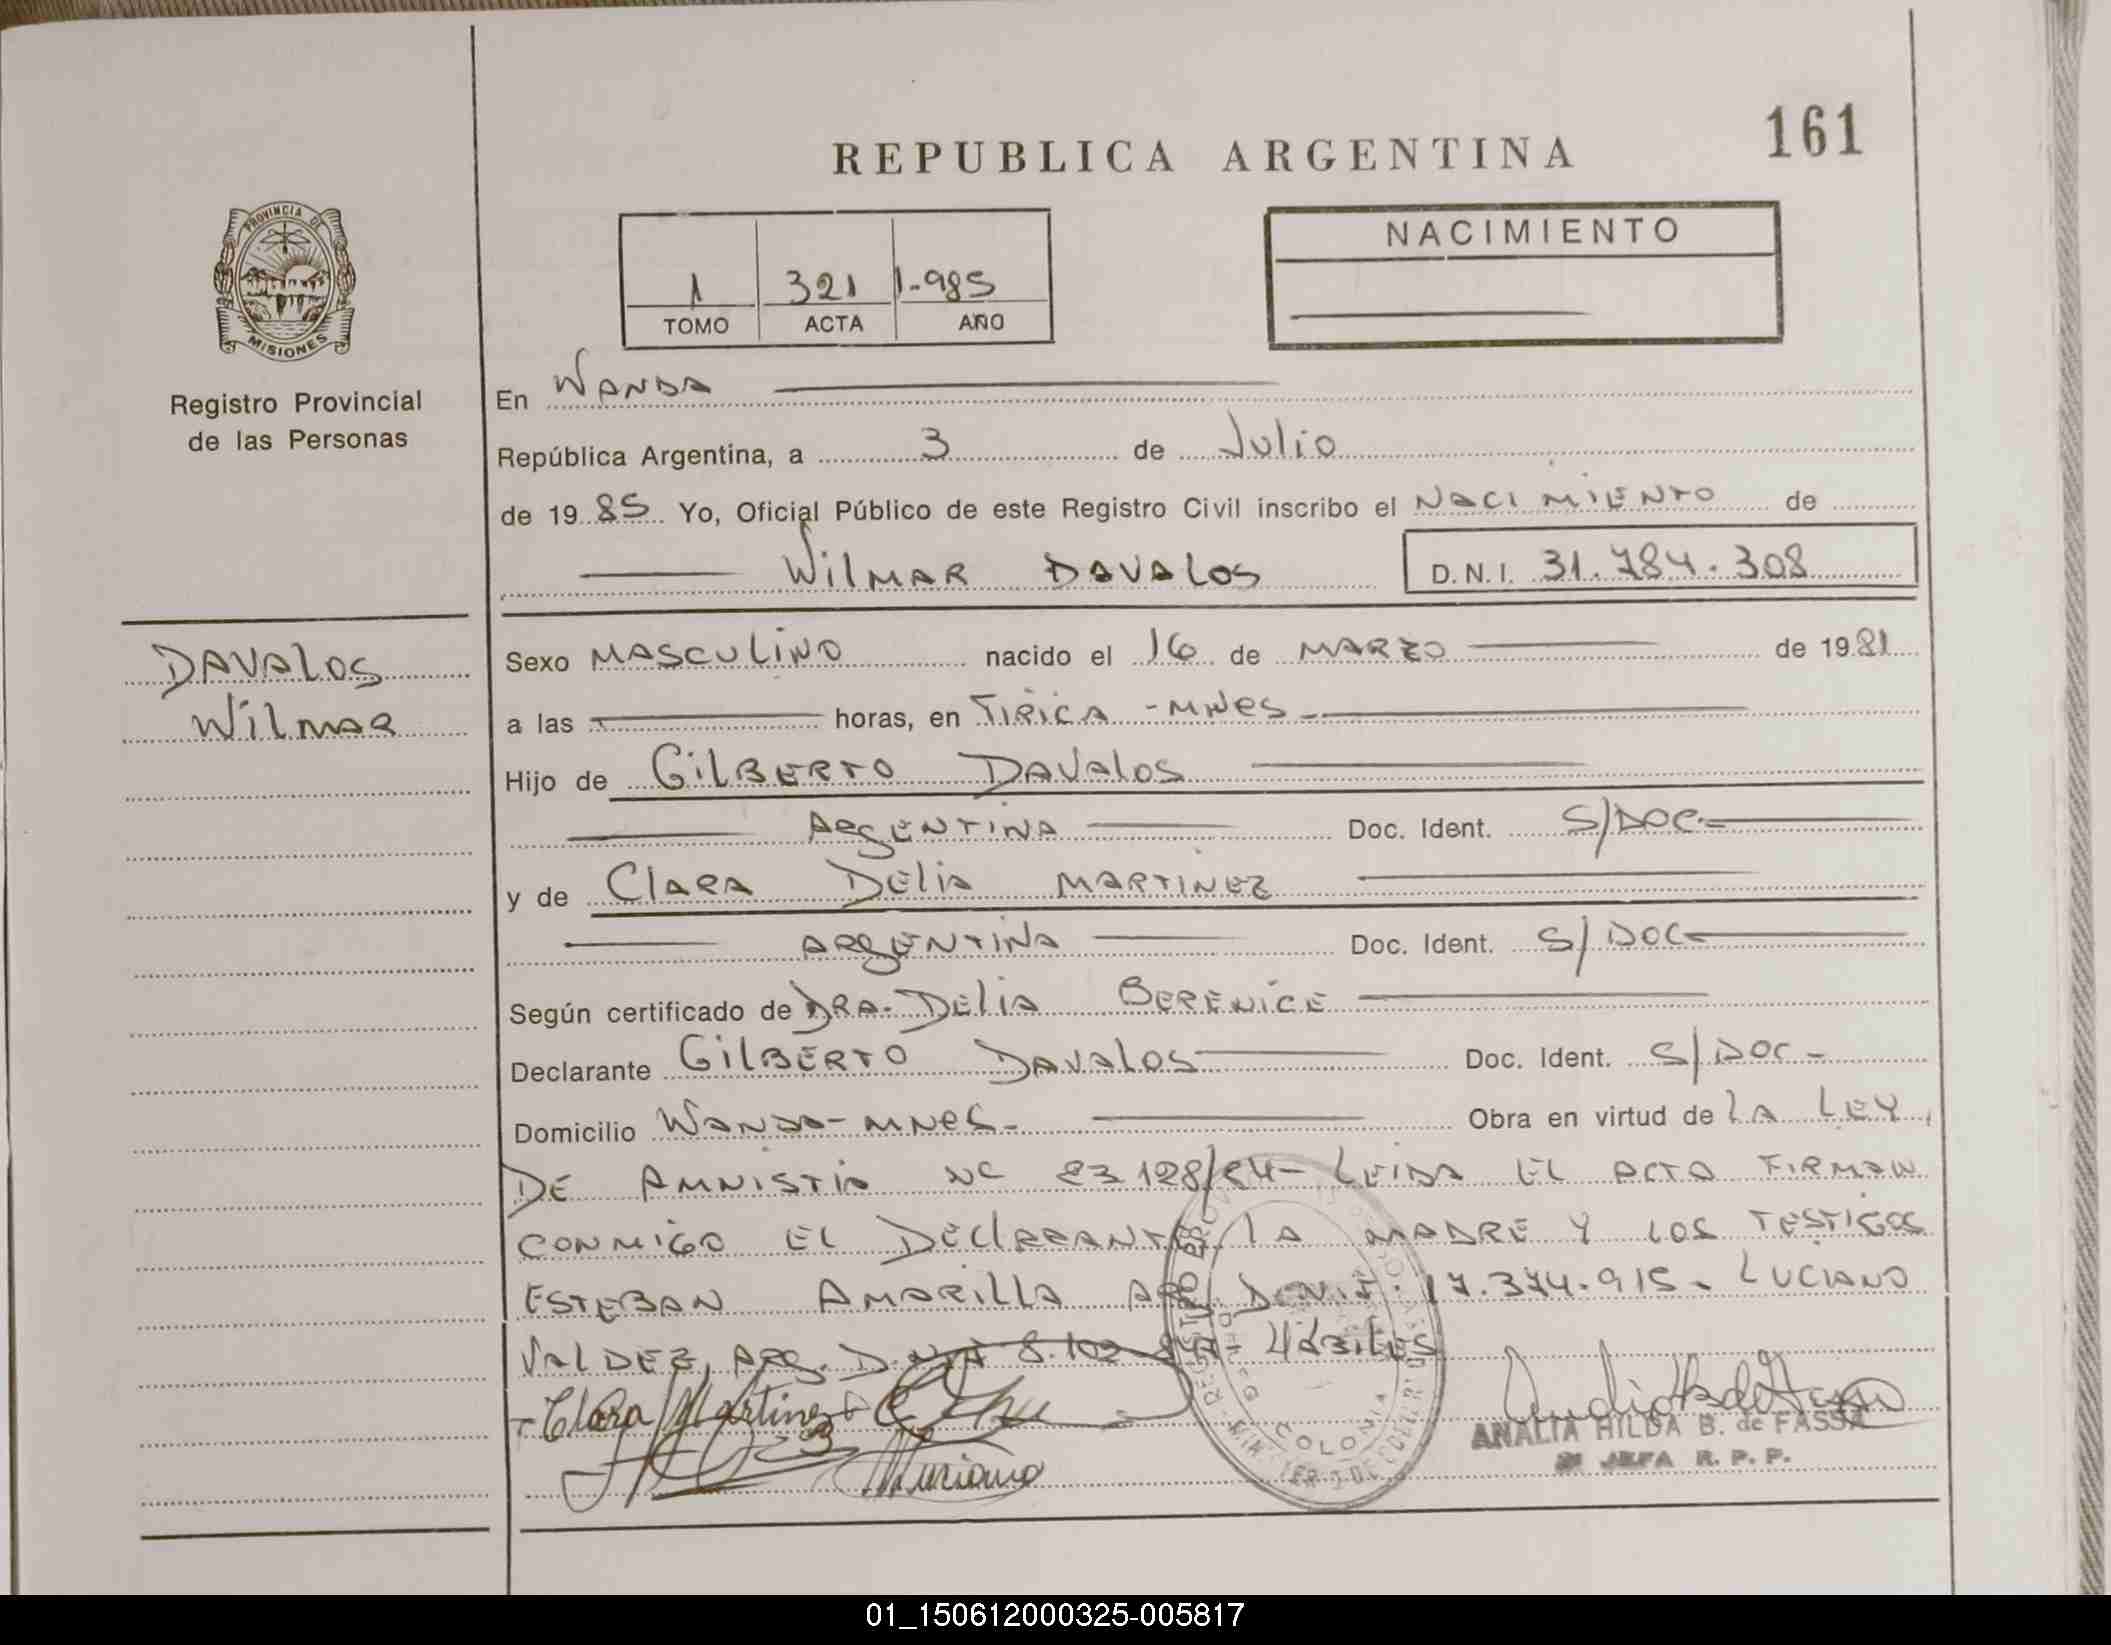 REPUBLICA ARGENTINA
161
PROVINCIA DE
MISIONES
Registro Provincial
de las Personas
1 321 1.985
TOMO ACTA AÑO
NACIMIENTO
En WANDA
República Argentina, a 3 de Julio
de 1985 Yo, Oficial Público de este Registro Civil inscribo el NACIMIENTO de
WILMAR DAVALOS D.N.I. 31.784.308
DAVALOS
WILMAR
Sexo MASCULINO nacido el 16 de MARZO de 1981
a las horas, en TIRICA - MNES -
Hijo de GILBERTO DAVALOS
ARGENTINA Doc. Ident. S/DOC-
y de CLARA DELIA MARTINEZ
ARGENTINA Doc. Ident. S/DOC-
Según certificado de DRA. DELIA BERENICE
Declarante GILBERTO DAVALOS Doc. Ident. S/DOC-
Domicilio WANDA-MNES- Obra en virtud de LA LEY
DE AMNISTIA Nº 23128/84- LEIDA EL ACTA FIRMAN
CONMIGO EL DECLARANTE, LA MADRE Y LOS TESTIGOS
ESTEBAN AMARILLA ARG. D.N.I. 17.374.915- LUCIANO
VALDEZ, ARG. D.N.I 8.102 HÁBILES
Clara Martinez
Luciano
COLONIA
ANALIA HILDA B. de FASSA
JEFA R. P. P.
01_150612000325-005817